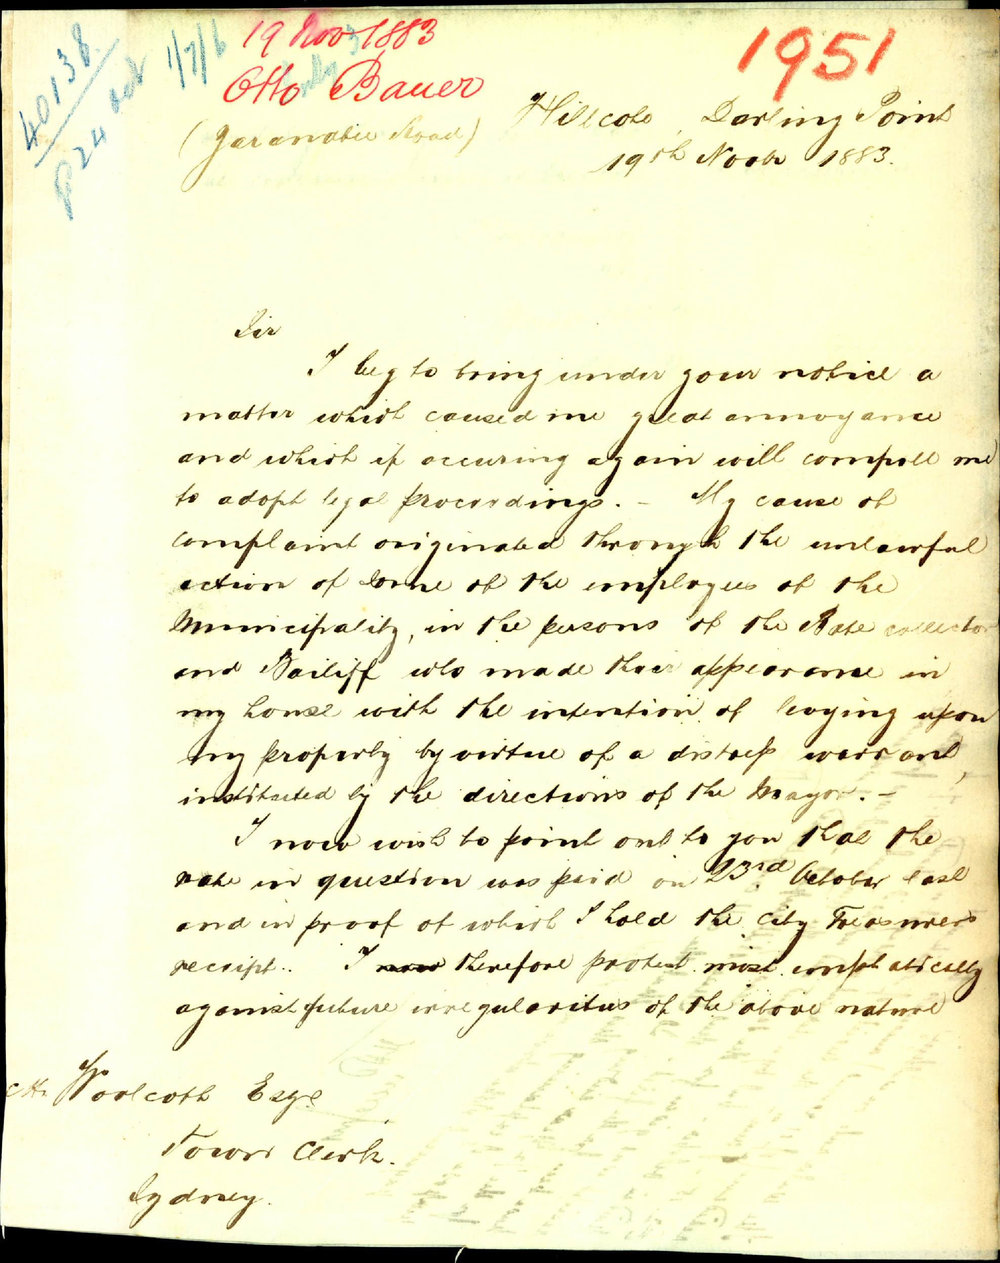 40138
P24 Oct 1/7/6
19 Nov 1883
Otto Bauer
1951
(Yaranabee Road)
Hillcote, Darling Point
19th Novbr 1883.
Sir
I beg to bring under your notice a
matter which caused me great annoyance
and which if accuring again will compell me
to adopt legal proceedings. — My cause of
complaint originated through the unlawful
action of some of the employees of the
Municipality, in the persons of the Rate collector
and Bailiff who made their appearance in
my house with the intention of levying upon
my property by virtue of a distress warrant,
instituted by the directions of the Mayor. —
I now wish to point out to you that the
rate in question was paid on 23rd October last
and in proof of which I hold the City Treasurers
receipt. I now therefore protest most emphatically
against future irregularities of the above nature
Woolcott Esqr.
Town Clerk.
Sydney.